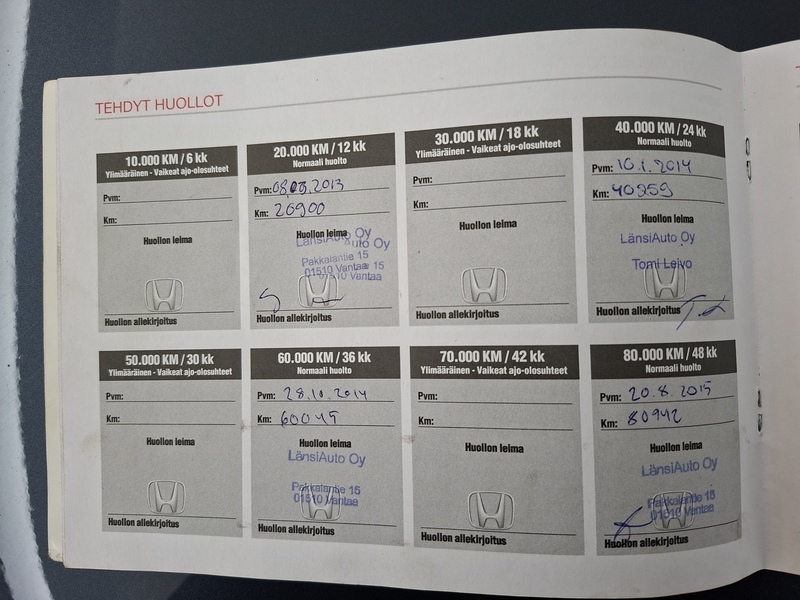 TEHDYT HUOLLOT
10.000 KM / 6 kk
Ylimääräinen - Vaikeat ajo-olosuhteet
Pvm:
Km:
Huollon leima
Huollon allekirjoitus
20.000 KM / 12 kk
Normaali huolto
Pvm: 08.03.2013
Km: 20900
Huollon leima
LänsiAuto Oy
Auto Oy
Pakkalantie 15
01510 Vantaa 15
01510 Vantaa
Huollon allekirjoitus
30.000 KM / 18 kk
Ylimääräinen - Vaikeat ajo-olosuhteet
Pvm:
Km:
Huollon leima
Huollon allekirjoitus
40.000 KM / 24 kk
Normaali huolto
Pvm: 10.1.2014
Km: 40959
Huollon leima
LänsiAuto Oy
Tomi Leivo
Huollon allekirjoitus
50.000 KM / 30 kk
Ylimääräinen - Vaikeat ajo-olosuhteet
Pvm:
Km:
Huollon leima
Huollon allekirjoitus
60.000 KM / 36 kk
Normaali huolto
Pvm: 28.10.2014
Km: 60045
Huollon leima
LänsiAuto Oy
Pakkalantie 15
01510 Vantaa
Huollon allekirjoitus
70.000 KM / 42 kk
Ylimääräinen - Vaikeat ajo-olosuhteet
Pvm:
Km:
Huollon leima
Huollon allekirjoitus
80.000 KM / 48 kk
Normaali huolto
Pvm: 20.8.2015
Km: 80942
Huollon leima
LänsiAuto Oy
Pakkalantie 15
01510 Vantaa
Huollon allekirjoitus